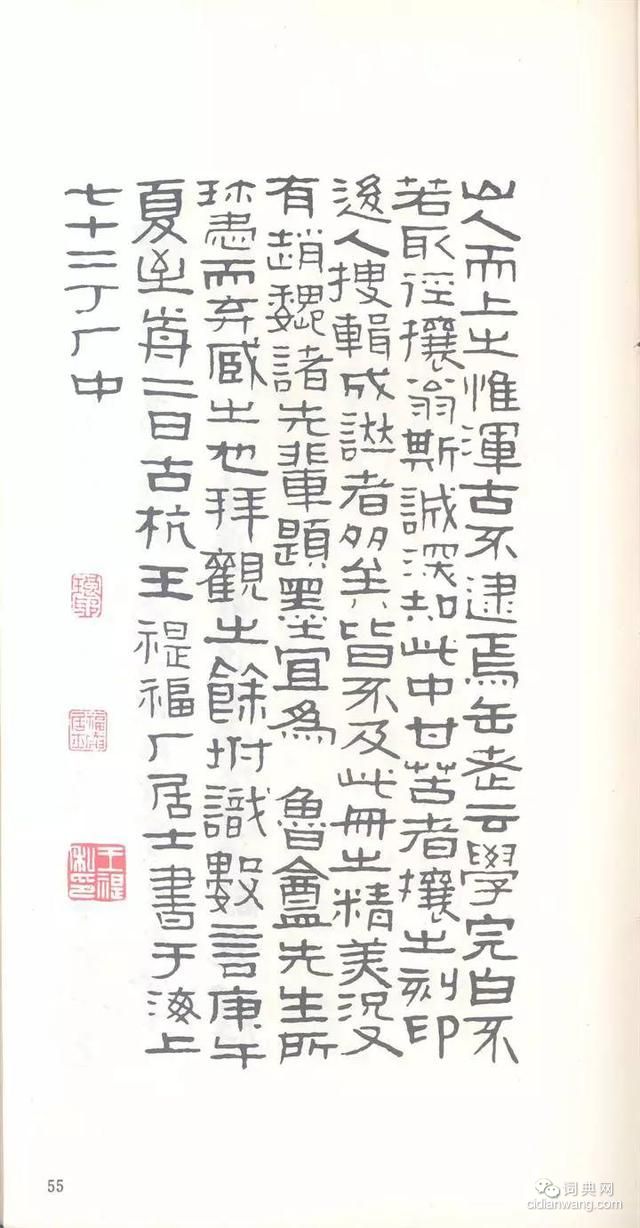 山人而上之惟渾古不逮焉缶老云學完白不
若取徑攘翁斯誠深知此中甘苦者攘之刻印
後人搜輯成譜者多矣皆不及此冊之精美況又
有趙魏諸先輩題墨宜為 魯盦先生所
珍㤅而弆臧之也拜觀之餘坿識數言庚午
夏至前二日古杭王禔福厂居士書于海上
七十二丁厂中
福菴居士
王禔私印
55
词典网
cidianwang.com